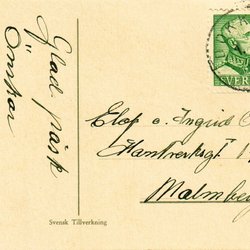 Glad påsk
Önskar
SVERI
Elof o. Ingrid
Hantverksgt. 1
Malmbe
Svensk Tillverkning